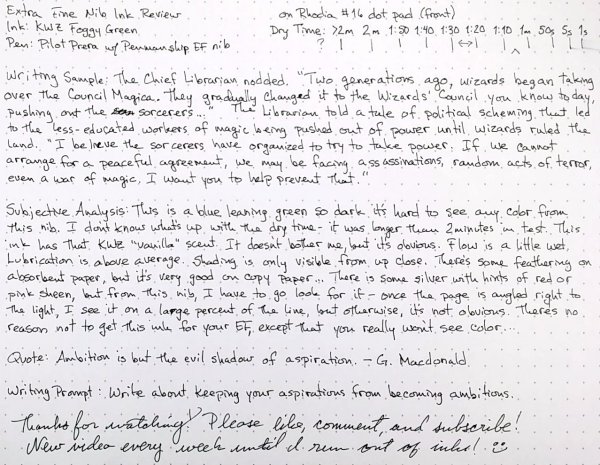 Extra Fine Nib Ink Review
on Rhodia #16 dot pad (front)
Ink: KWZ Foggy Green
Dry Time: >2m 2m 1:50 1:40 1:30 1:20 1:10 1m 50s 5s 1s
Pen: Pilot Prera w/ Penmanship EF nib
?
Writing Sample: The Chief Librarian nodded. "Two generations ago, wizards began taking
over the Council Magica. They gradually changed it to the Wizards' Council you know today,
pushing out the sorcerers..." The Librarian told a tale of political scheming that led
to the less-educated workers of magic being pushed out of power until wizards ruled the
land. "I believe the sorcerers have organized to try to take power. If we cannot
arrange for a peaceful agreement, we may be facing assassinations, random acts of terror,
even a war of magic. I want you to help prevent that."
Subjective Analysis: This is a blue leaning green so dark it's hard to see any color from
this nib. I don't know what's up with the dry time - it was longer than 2 minutes in test. This
ink has that KWZ "vanilla" scent. It doesn't bother me, but it's obvious. Flow is a little wet.
Lubrication is above average. Shading is only visible from up close. There's some feathering on
absorbent paper, but it's very good on copy paper... There is some silver with hints of red or
pink sheen, but from this nib, I have to go look for it - once the page is angled right to
the light, I see it on a large percent of the line, but otherwise, it's not obvious. There's no
reason not to get this ink for your EF, except that you really won't see color...
Quote: Ambition is but the evil shadow of aspiration. - G. Macdonald
Writing Prompt: Write about keeping your aspirations from becoming ambitions.
Thanks for watching! Please like, comment, and subscribe!
New video every week until I run out of inks!